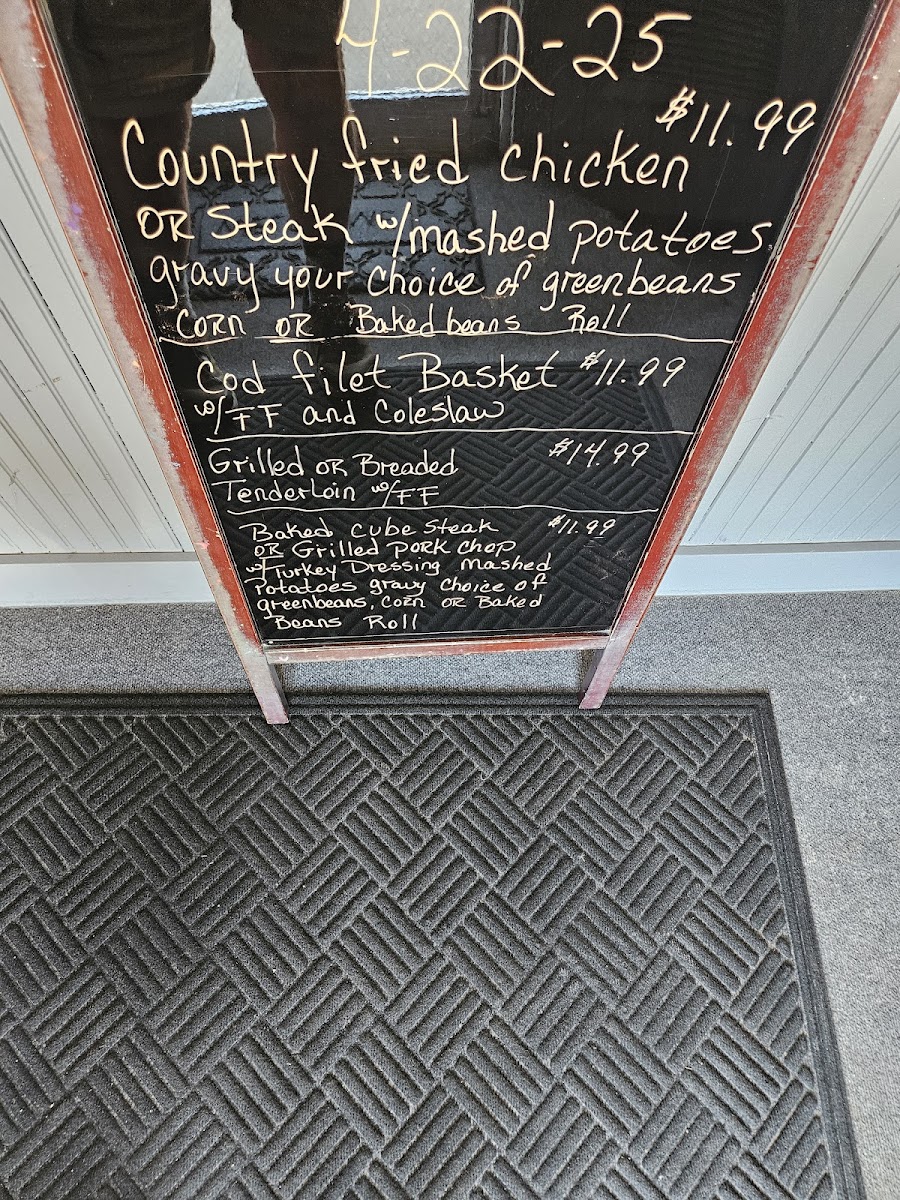 4-22-25
$11.99
Country fried chicken
OR Steak w/mashed potatoes
gravy your choice of greenbeans
Corn OR Baked beans Roll
Cod filet Basket $11.99
w/FF and Coleslaw
Grilled OR Breaded $14.99
Tenderloin w/FF
Baked Cube Steak $11.99
OR Grilled PORK Chop
w/Turkey Dressing mashed
Potatoes gravy choice of
greenbeans, Corn OR Baked
Beans Roll